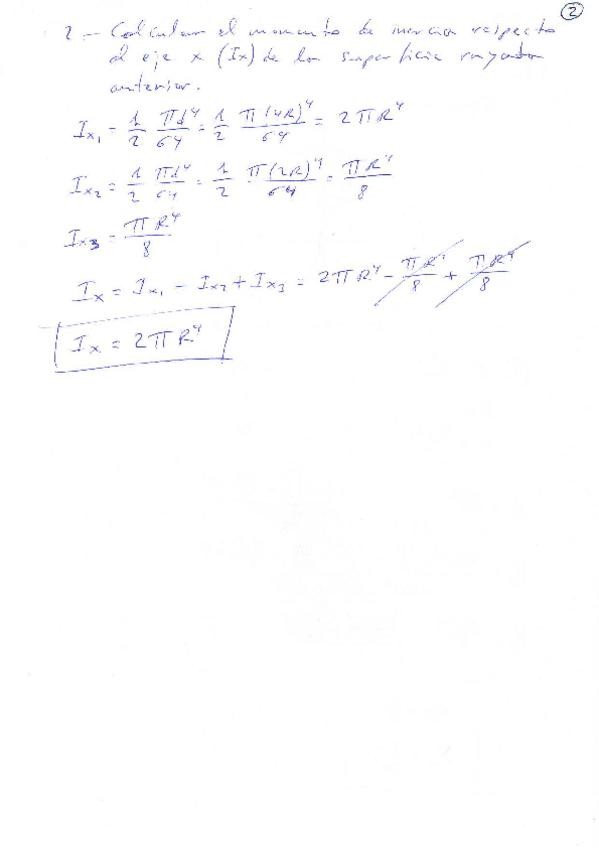 2
2.- Calcular el momento de inercia respecto
al eje x (Ix) de la superficie rayada
anterior.
Ix1 = 1/2 πd⁴/64 = 1/2 π(4R)⁴/64 = 2πR⁴
Ix2 = 1/2 πd⁴/64 = 1/2 · π(2R)⁴/64 = πR⁴/8
Ix3 = πR⁴/8
Ix = Ix1 - Ix2 + Ix3 = 2πR⁴ - πR⁴/8 + πR⁴/8
Ix = 2πR⁴